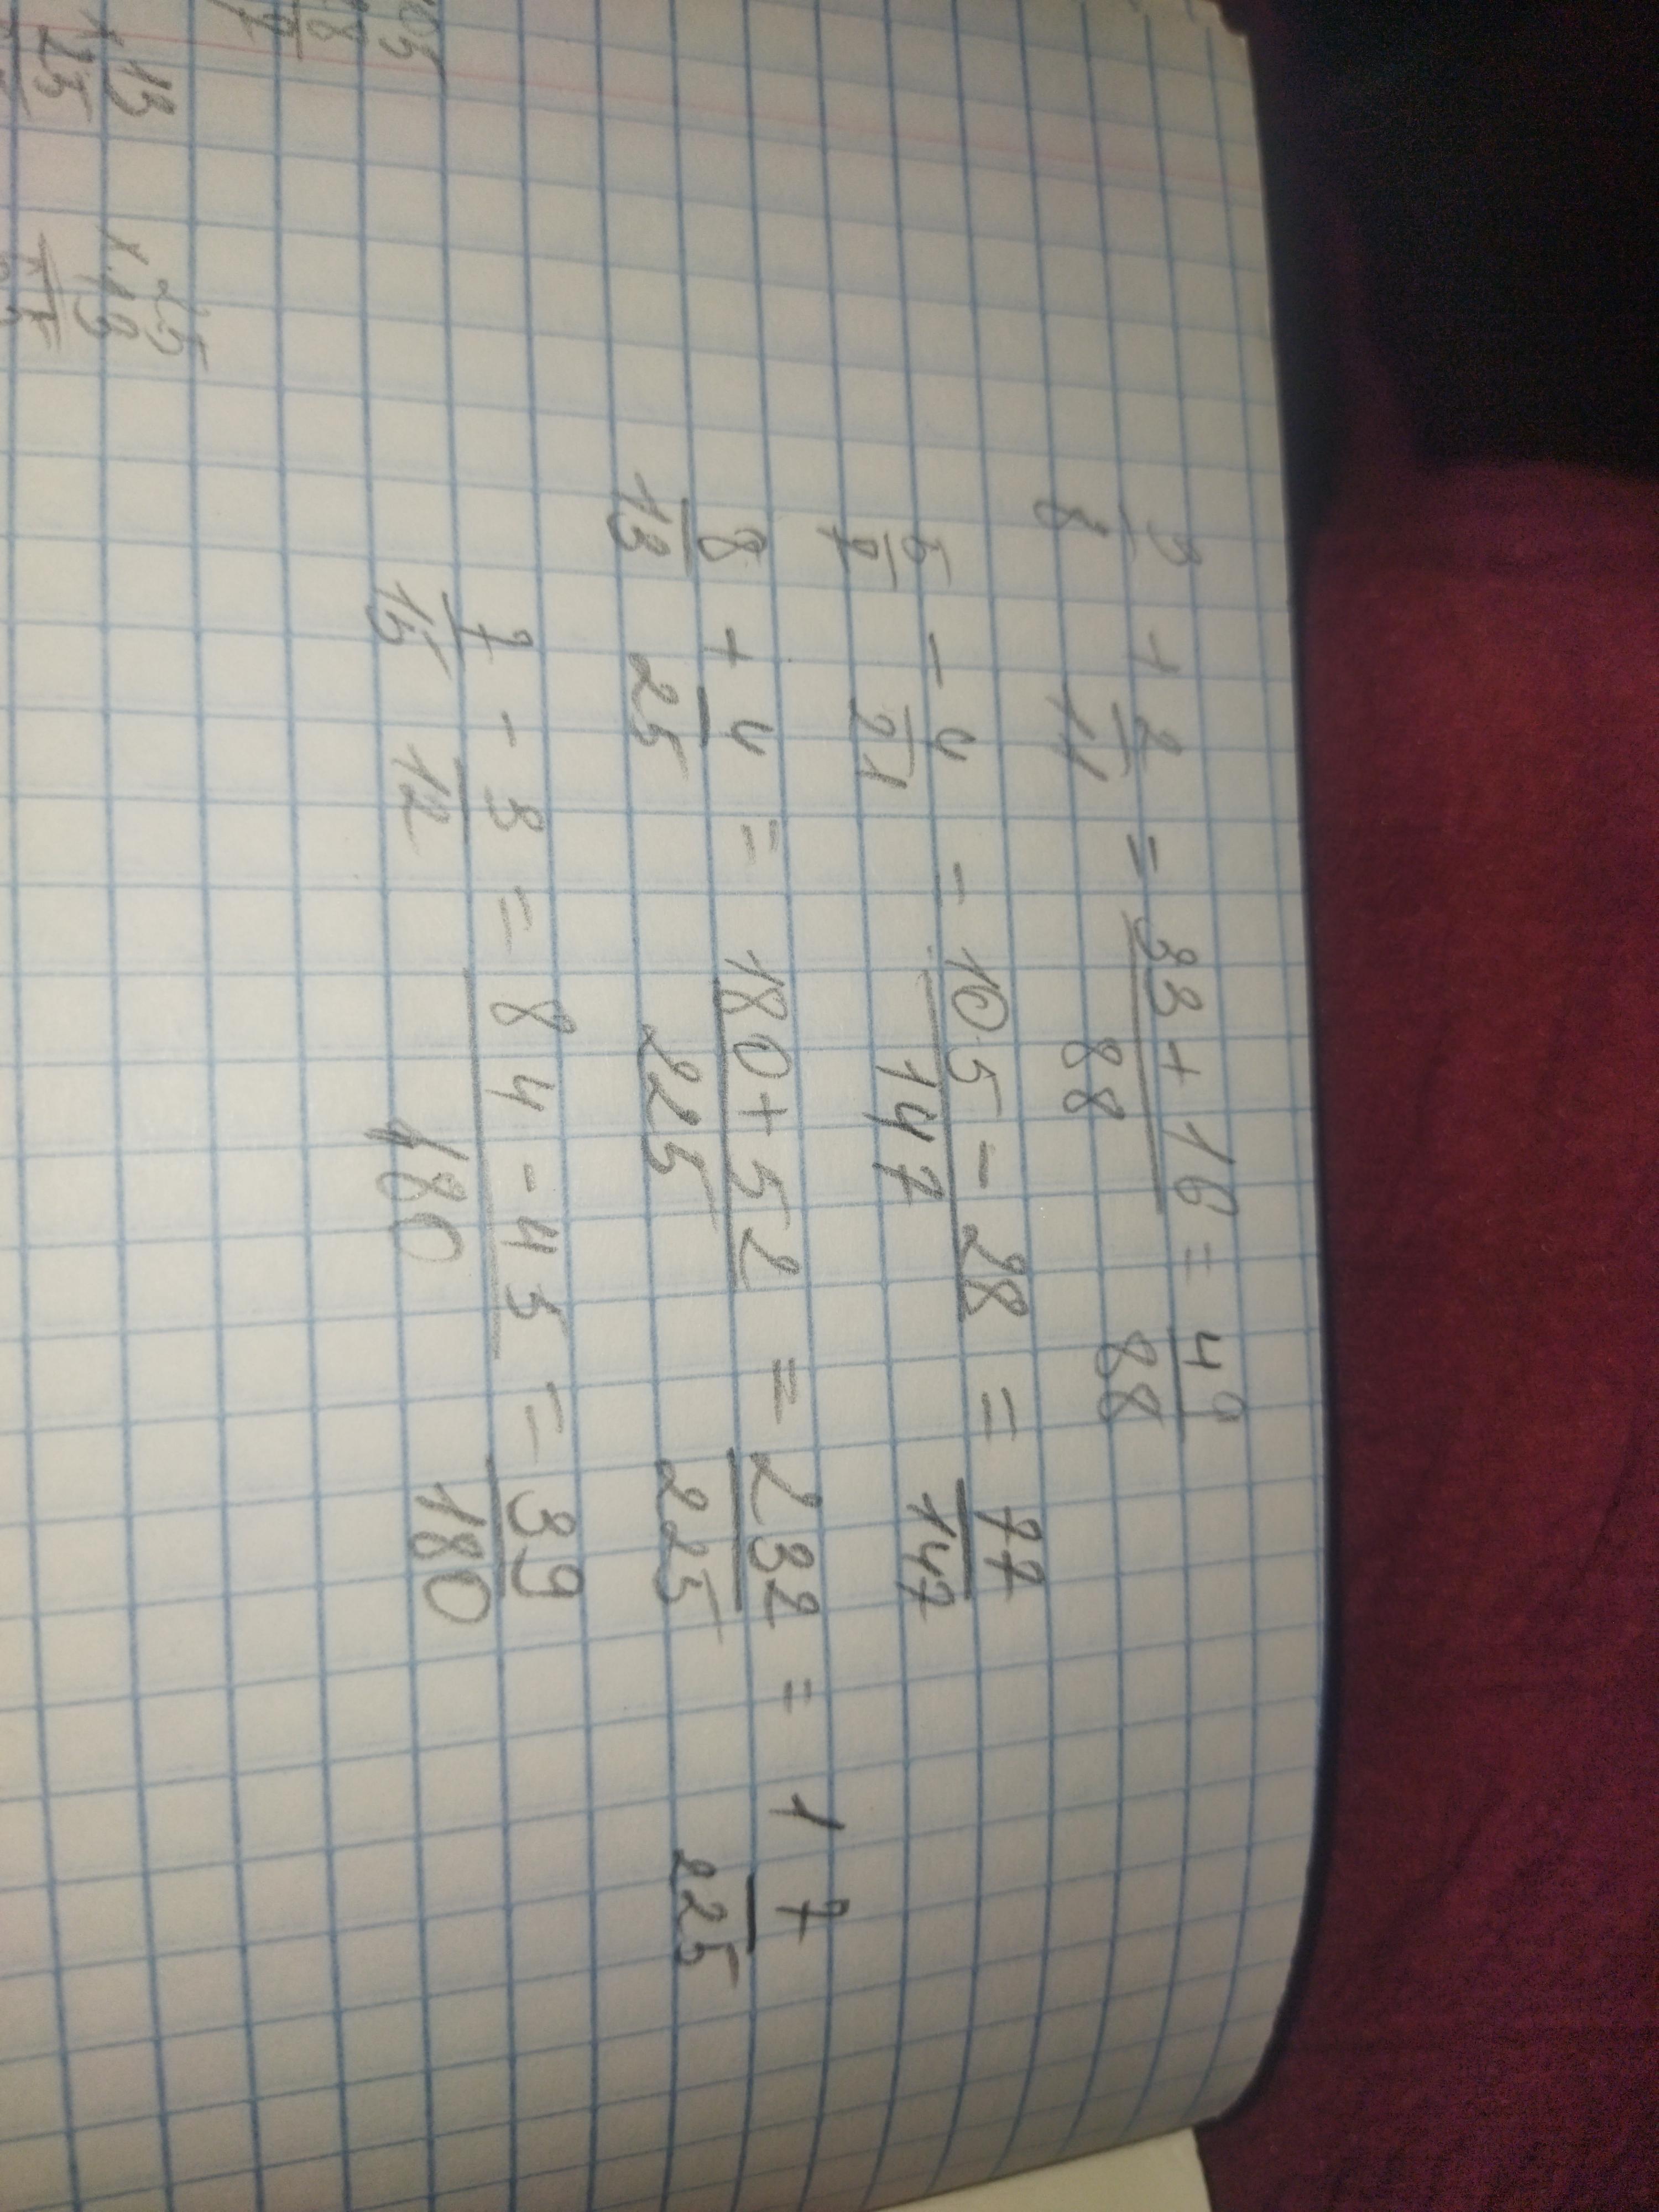 3/8 + 2/11 = (33+16)/88 = 49/88
5/7 - 4/21 = (105-28)/147 = 77/147
8/13 + 4/25 = (180+52)/225 = 232/225 = 1 7/225
7/15 - 3/12 = (84-45)/180 = 39/180
105
28
x 13
25
x 25
13